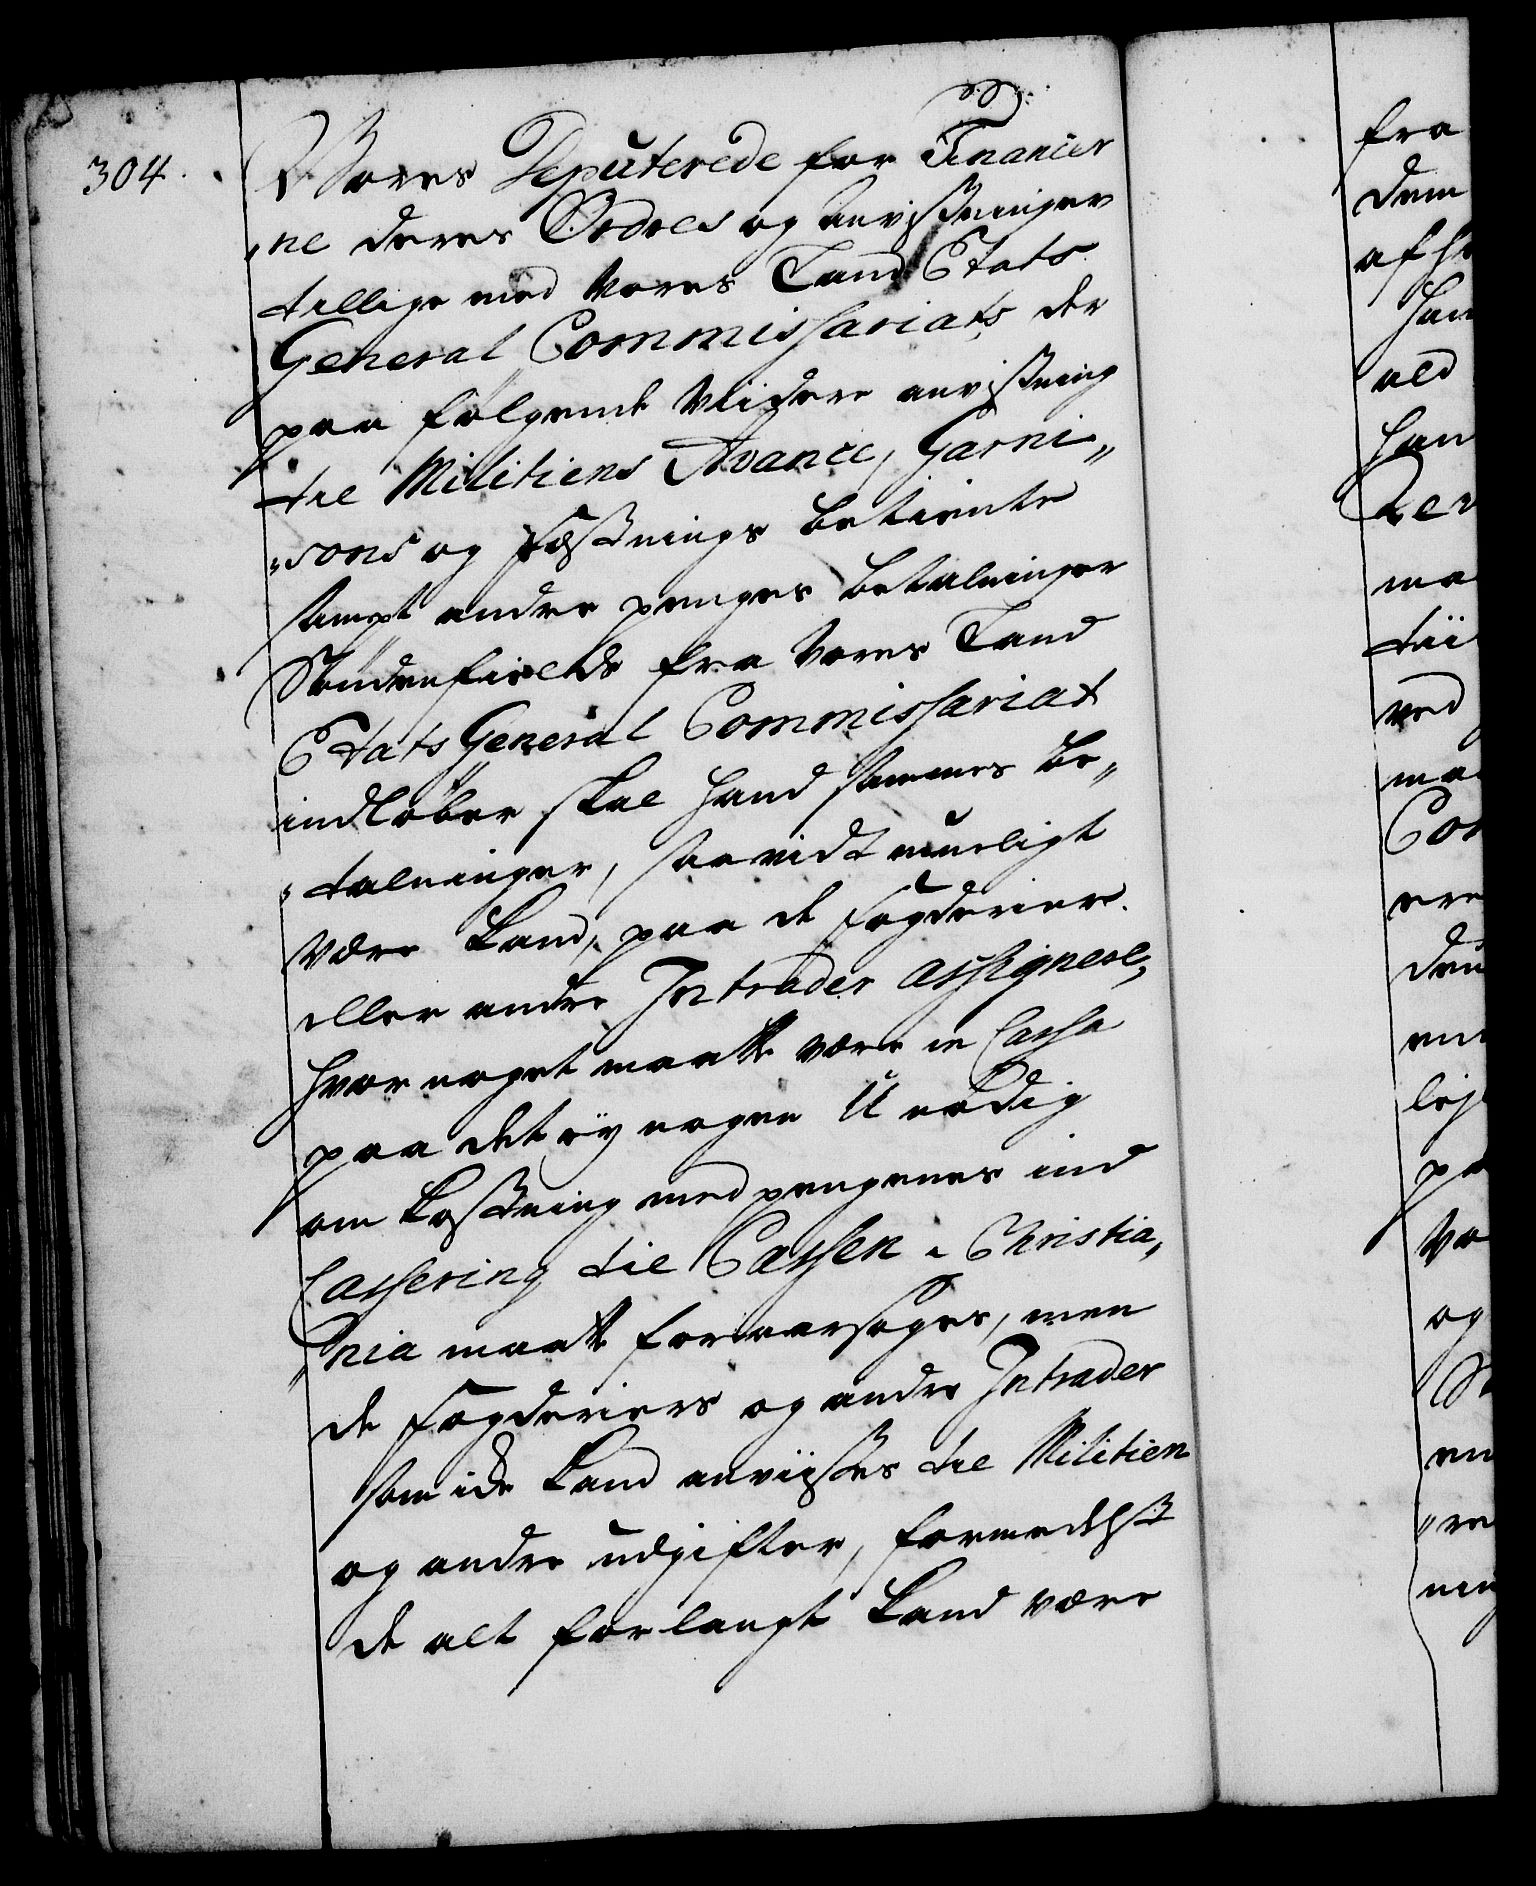 304.
Vores Deputerede for Financier
„ne deres Ordres og anvissninger
tillige med Vores Land Etats
General Commissariats, der
paa følgende Viidere anvissning
til Militiens Avance, Garni„
„sons og Fæstnings betiente
sampt andre penges betalninger
Søndenfields fra Vores Land
Etats General Commissariat
indløber skal hand sammes be„
„talninger, saavidt mueligt
være kand, paa de Fogderier
eller andre Intrader assignere,
hvor noget maatte være in Cassa
paa det ey nogen Unødig
omkostning med pengenes ind
Cassering til Cassen i Christia„
„nia maatte foraarsages, men
de Fogderiers og andre Intrader
som icke kand anviises til Militien
og andre udgifter, formedelst
de alt for langt kand være
fra
dem
af
han
ald
han
ma
til
ved
og